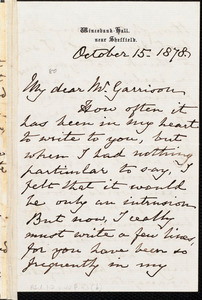 Wincobank Hall,
near Sheffield.
October 15. 1878.
My dear Mr. Garrison
How often it
has been in my heart
to write to you, but
when I had nothing
particular to say, I
felt that it would
be only an intrusion
But now, I really
must write a few lines,
for you have been so
frequently in my